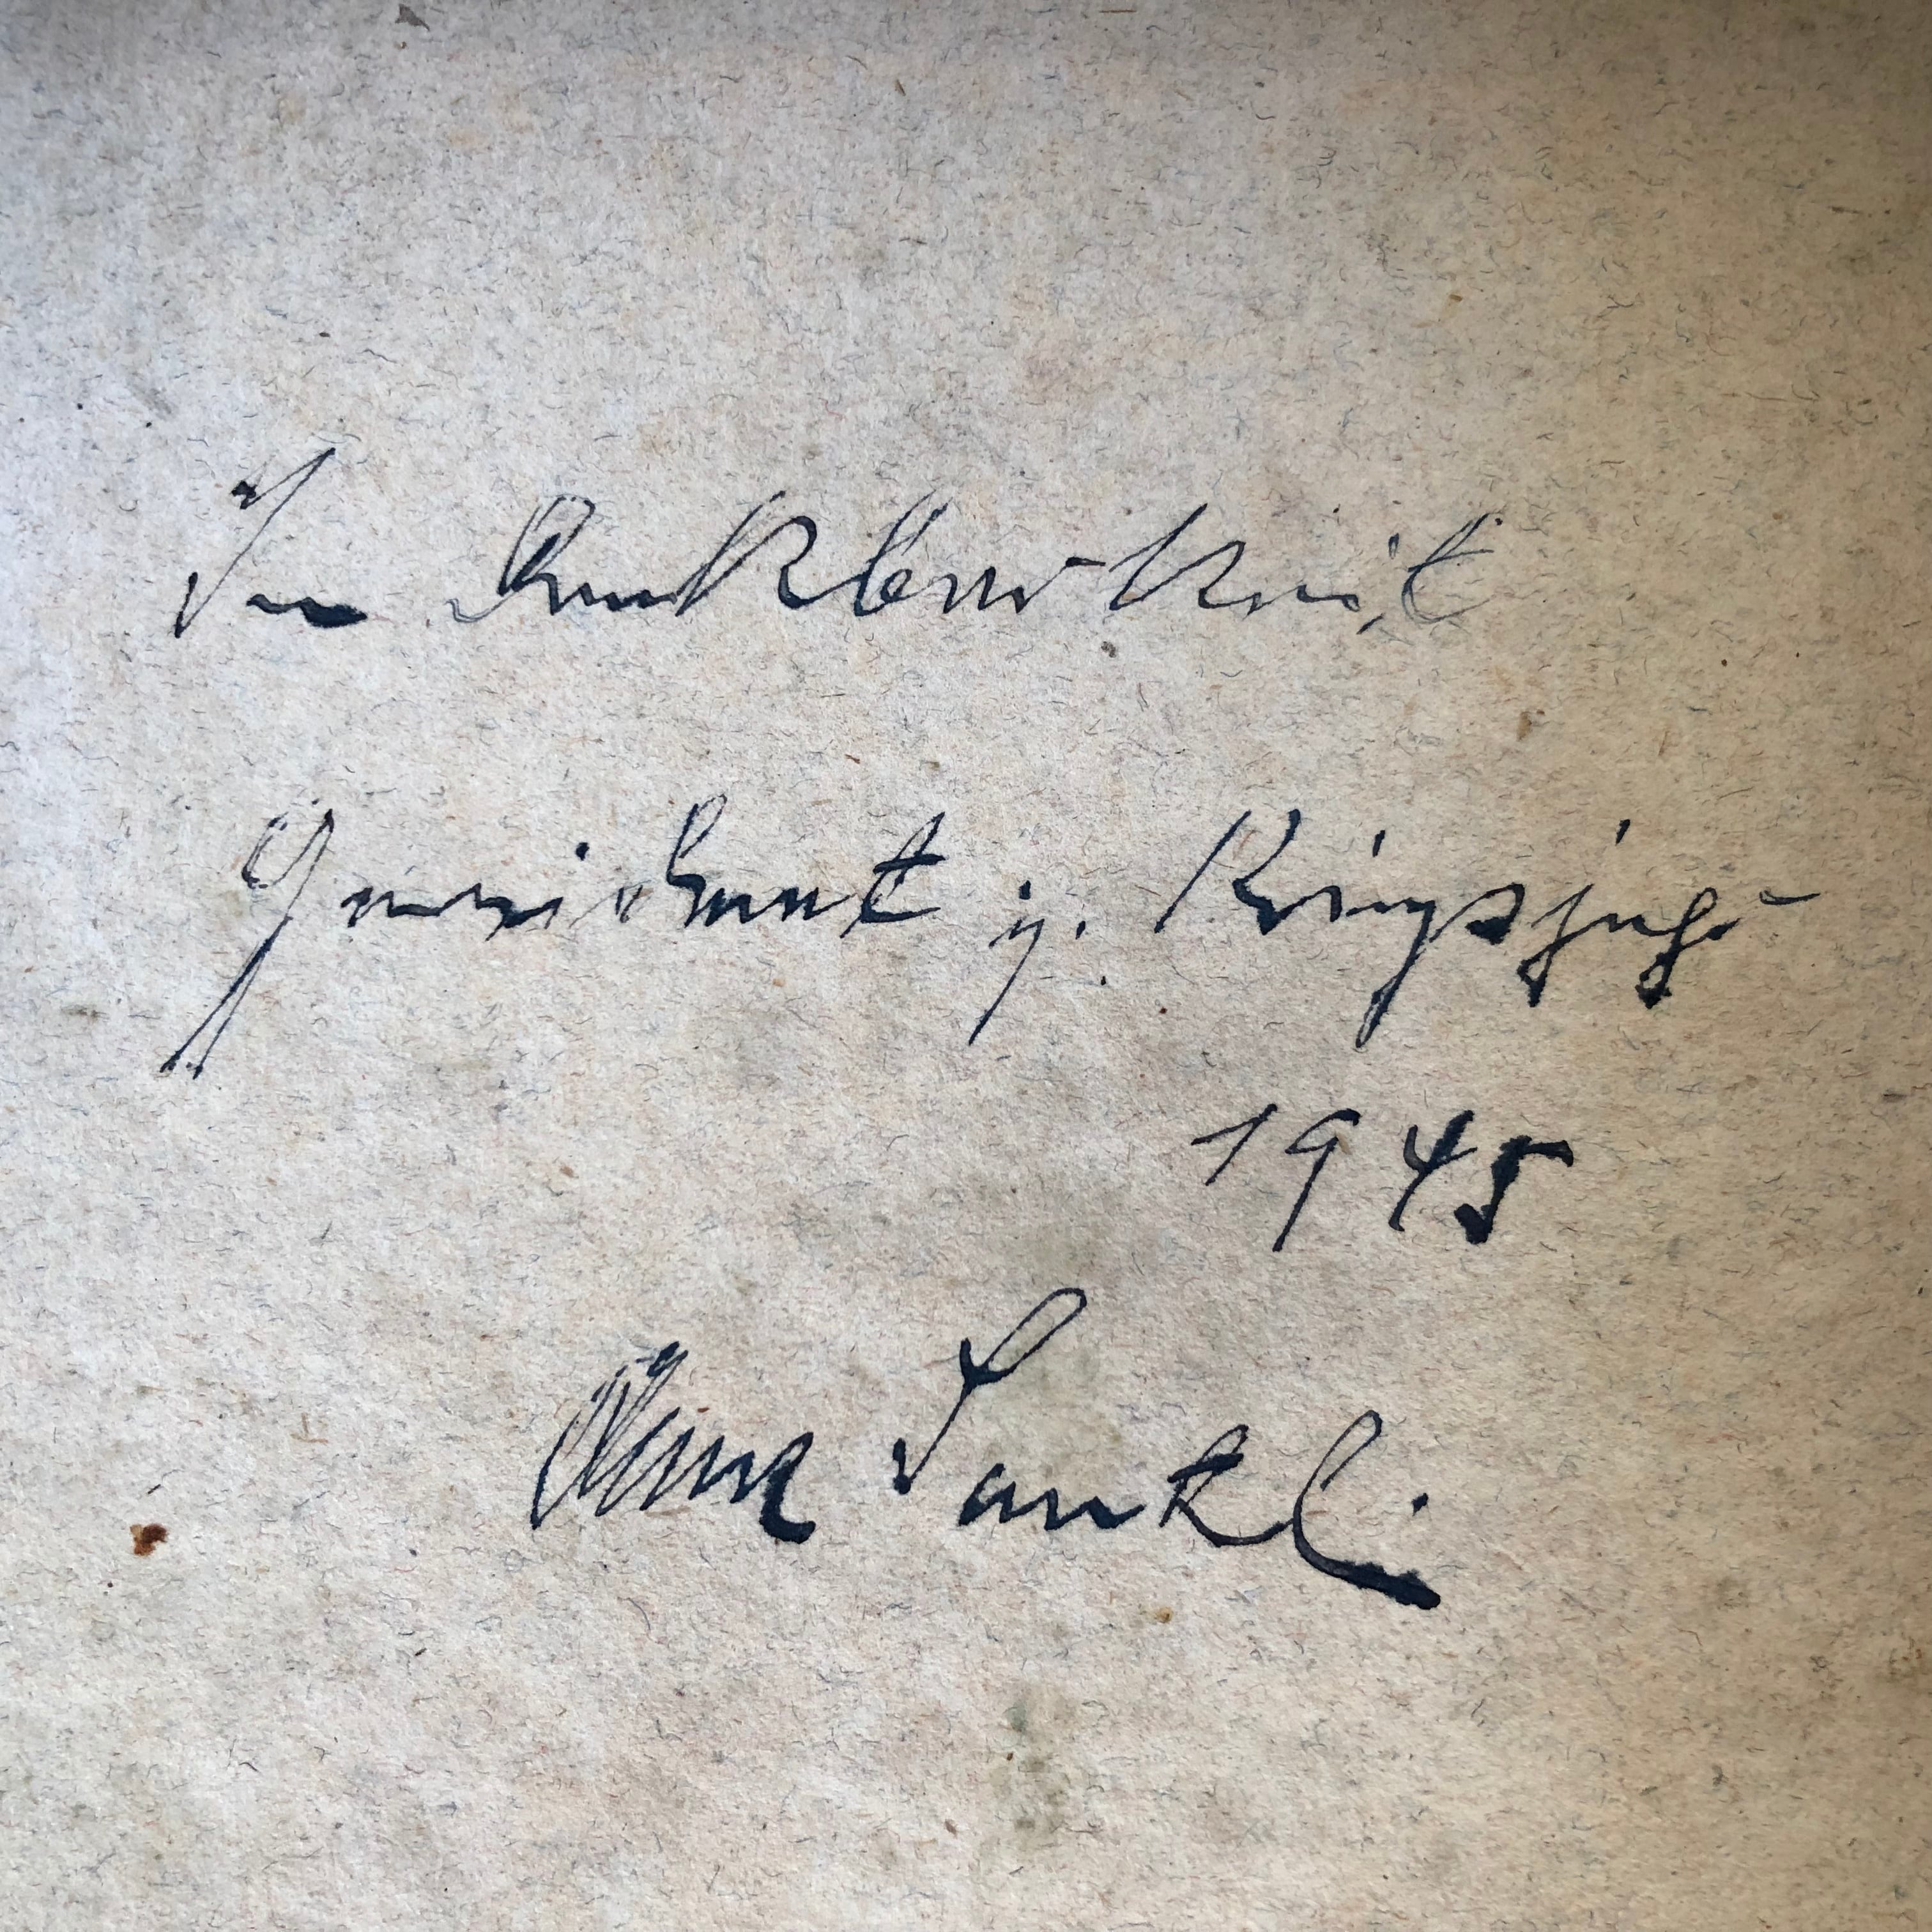 In Dankbarkeit
Gewidmet i. Kriegsjahr
1945
Sankli